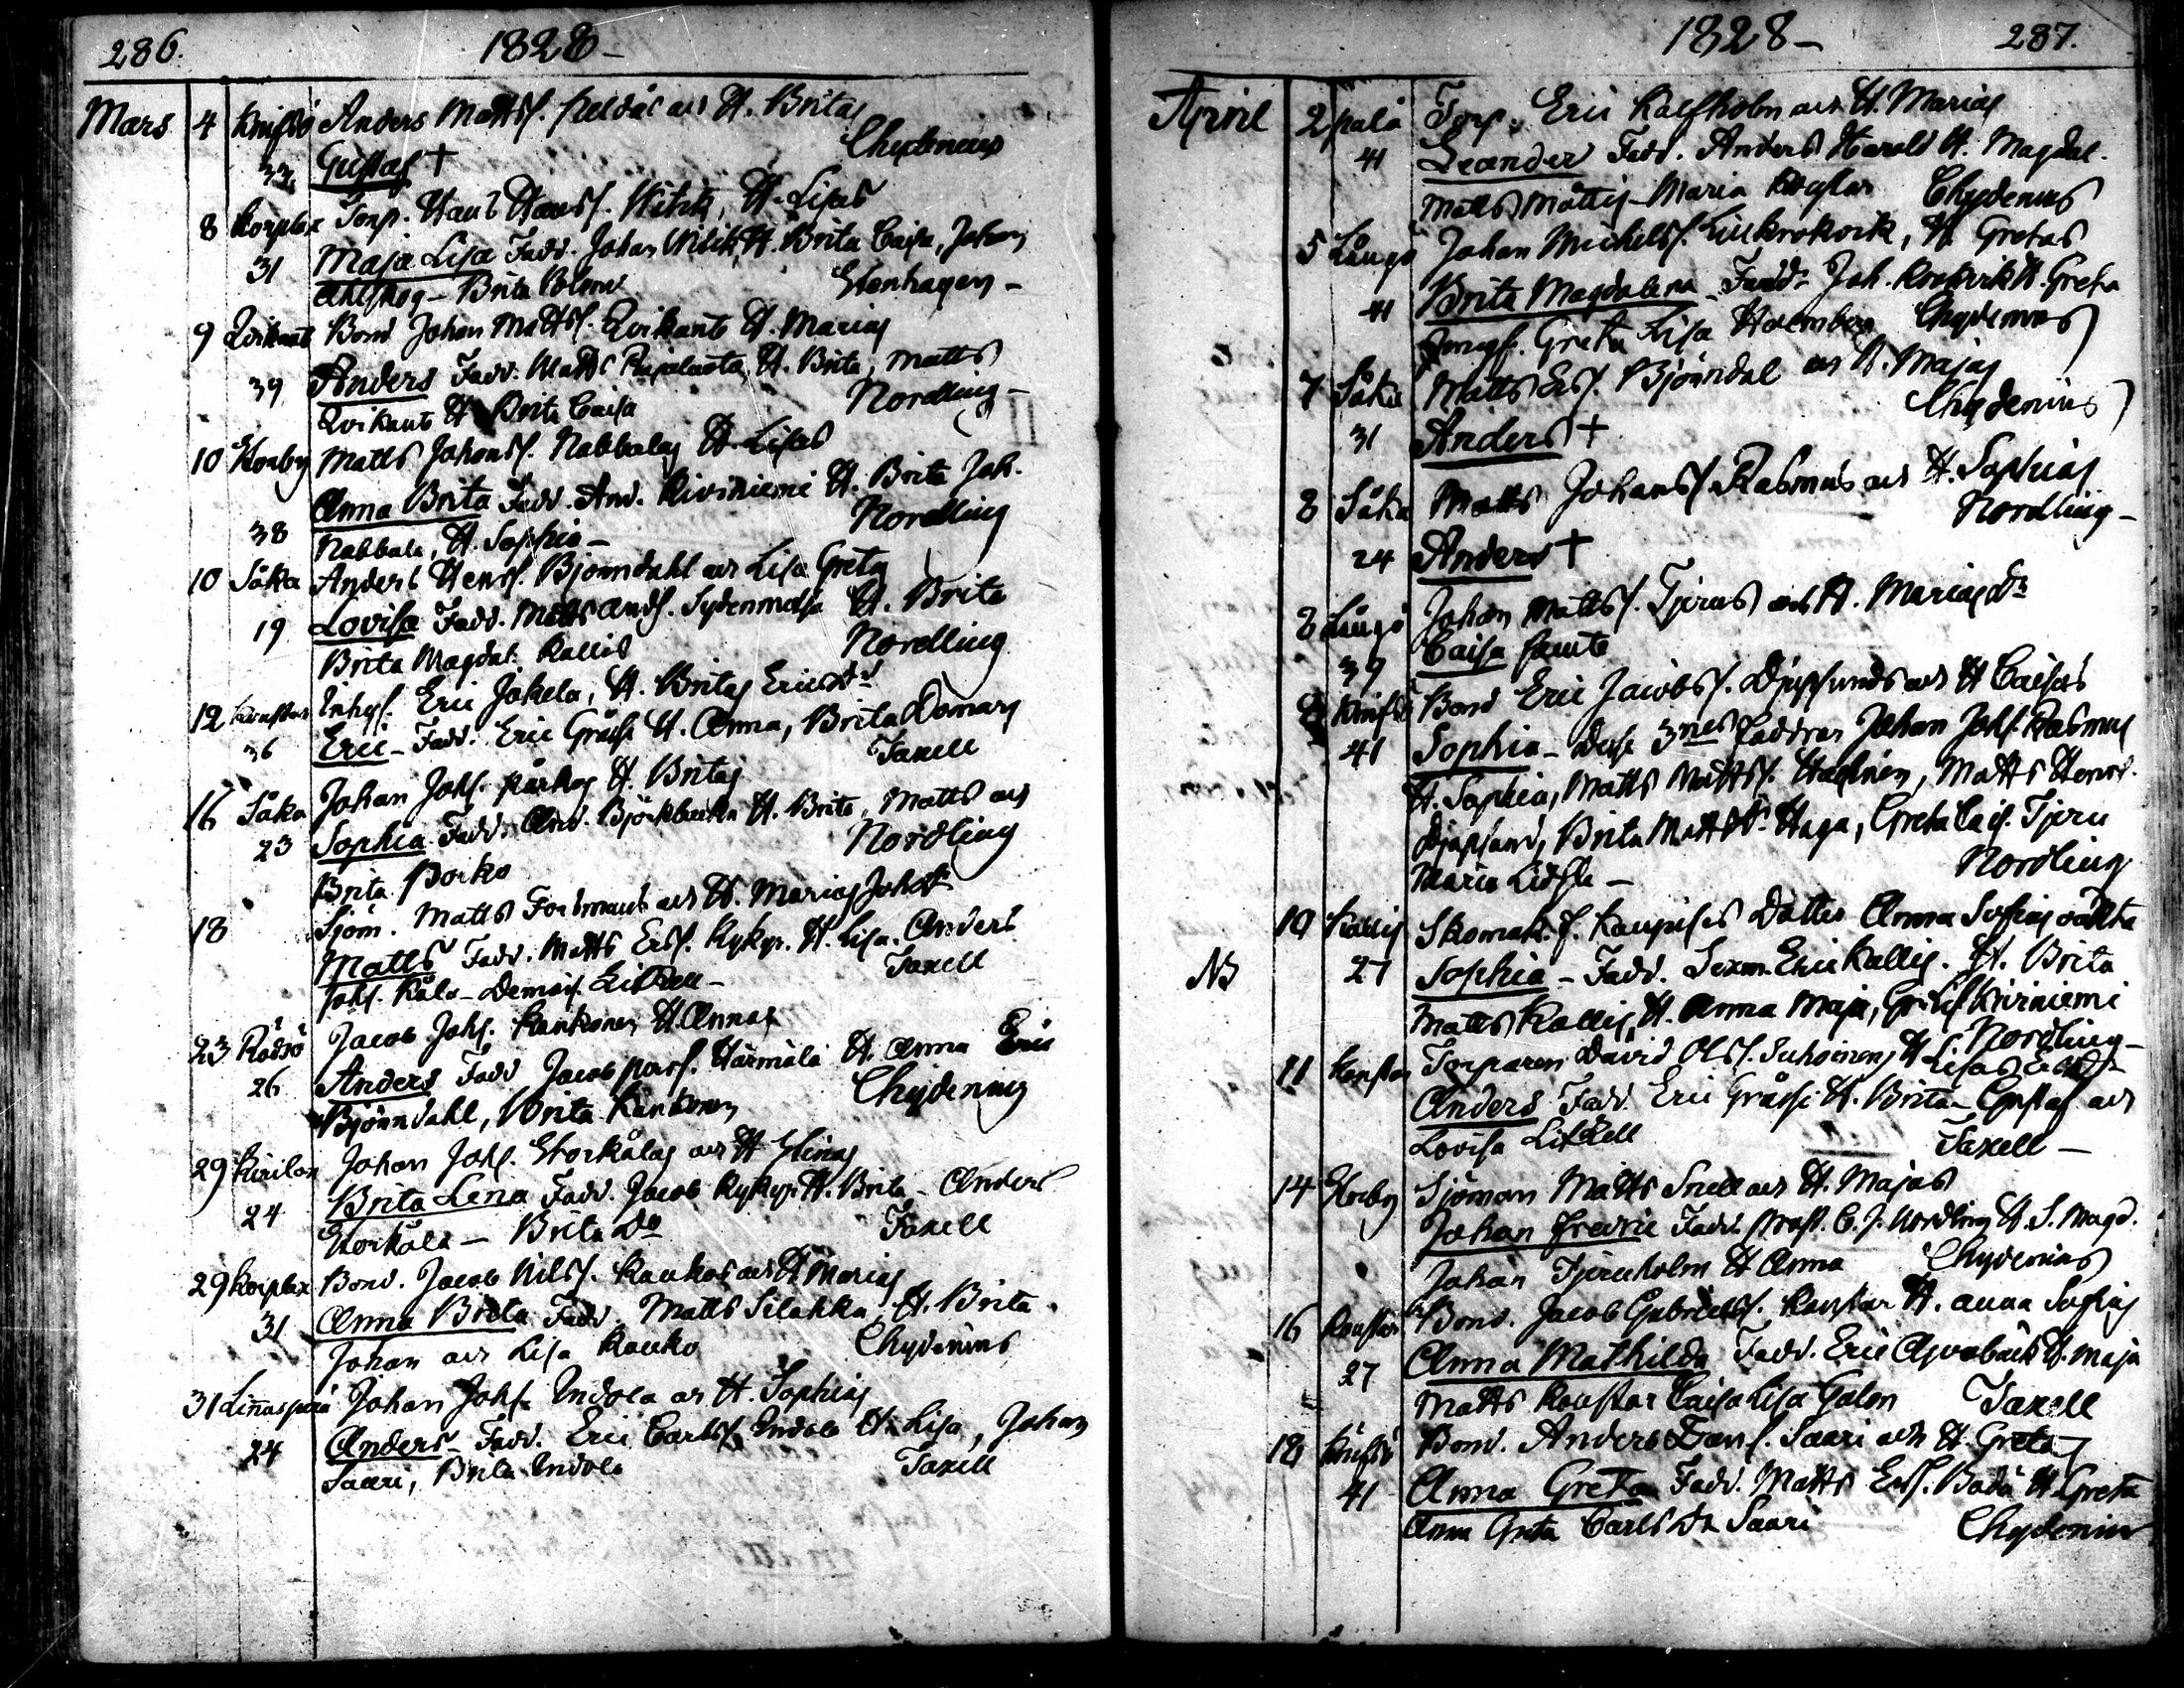 286. 1828-
Mars 4 Knifsö Anders Mattss. Neldås och H. Britas
33 Gustaf + Chydenius
8 Korplax Torp. Hans Hanss. Witik, H. Lisas
31 Maja Lisa Fadd. Johan Witik, H. Brita Caisa, Johan
Ahlskog - Brita Stenhagen -
9 Qvikant Bond Johan Mattss. Qvikants H. Marias
39 Anders Fadd. Matts H. Brita, Matts
Qvikants H Brita Caisa Nordling -
10 Storby Matts Johanss. Nabbalas H. Lisas
Anna Brita Fadd. And. Kiviniemi H. Brita Joh.
38 Nabbala, H. Sophia - Nordling
10 Såka Anders Henrs. Björndahl och Lisa Greta
19 Lovisa Fadd. Matts Ands. Sydenmetsä H. Brita
Brita Magdal. Kallis Nordling
12 Inhys. Eric Jokela, H. Britas Ericsdr
36 Eric - Fadd. Eric Gråsis H. Anna, Brita Domars
Taxell
16 Såka Johan Johs. H. Britas
23 Sophia Fadd. And. Björkbacka H. Brita, Matts och
Brita Borko Nordling
18 Sjöm. Matts Forsmans och H. Marias Johdr
Matts Fadd. Matts Erss. Kykyr. H. Lisa. Anders
Johs. Kåla - Demois. Lithell - Taxell
23 Rödsö Jacob Johs. Kankonen H. Annas
26 Anders Fadd Jacob Härmälä H. Anna Eric
Björndahl, Brita Kankonen Chydenius
29 Johan Johs. Storkålas och H
24 Brita Lena Fadd. Jacob Kykyr. H. Brita - Anders
Storkåla - Brita Do Taxell
29 Korplax Bond. Jacob Nilss. Kaukos och H Marias
31 Anna Brita Fadd. Matts Silakka, H. Brita.
Johan och Lisa Kauko Chydenius
31 Linnasperä Johan Johs. Indola och H. Sophias
24 Anders - Fadd. Eric Carlss. Indola H. Lisa, Johan
Saari, Brita Indola Taxell
1828 - 287.
April 2 Torp. Eric Kalfholm och H. Marias
41 Leander Fadd. Anders Harald H. Magdal.
Matts Mattis - Maria Chydenius
5 Långö Johan Michelss. Lillkrokvik, H. Gretas
41 Brita Magdalena - Fadd. Joh. Krokvik H. Greta
Jungf. Greta Lisa Holmberg Chydenius
7 Såka Matts Erss. Björndal och H. Majas
31 Anders + Chydenius
8 Såka Matts Johanss. Rasmus och H. Sophias
24 Anders + Nordling -
8 Långö Johan Mattss. Tjerus och H. Marias dr
39 Caisa samte
8 Knifsö Bond Eric Jacobss. Djupsunds och H Caisas
41 Sophia - Desse 3nes Faddrar Johan Johs. Rasmus
H. Sophia, Matts Mattss. , Matts Henrs.
Djupsund, Brita Mattsdr. Haga, Greta Cais. Tjeru
Maria Lidsle - Nordling
10 Kallis Skomak. f. Kaupises Dotter Anna Sofias oäkta
NB 27 Sophia - Fadd. Sexm. Eric Kallis. H. Brita
Matts Kallis, H. Anna Maja, Gr. Lis Kiviniemi
Nordling -
11 Torparen David Olss. Suhoinens H. Lisas Ersdr
Anders Fadd. Eric Gråsis H. Brita - Gustaf och
Lovisa Lithell Taxell -
14 Storby Sjöman Matts Snell och H. Majas
Johan Fredric Fadd. Prost. C. J. Nordling H. S. Magd.
Johan Tjeruholm H Anna Chydenius
16 Bond. Jacob Gabrielss. H. Anna Sofias
27 Anna Mathilda Fadd. Eric H. Maja
Matts Caisa Lisa Galon Taxell
18 Knifsö Bond. Anders Dans. Saari och H. Greta
41 Anna Greta Fadd. Matts Erss. Bada H. Greta
Anna Greta Carlsdr Saari Chydenius